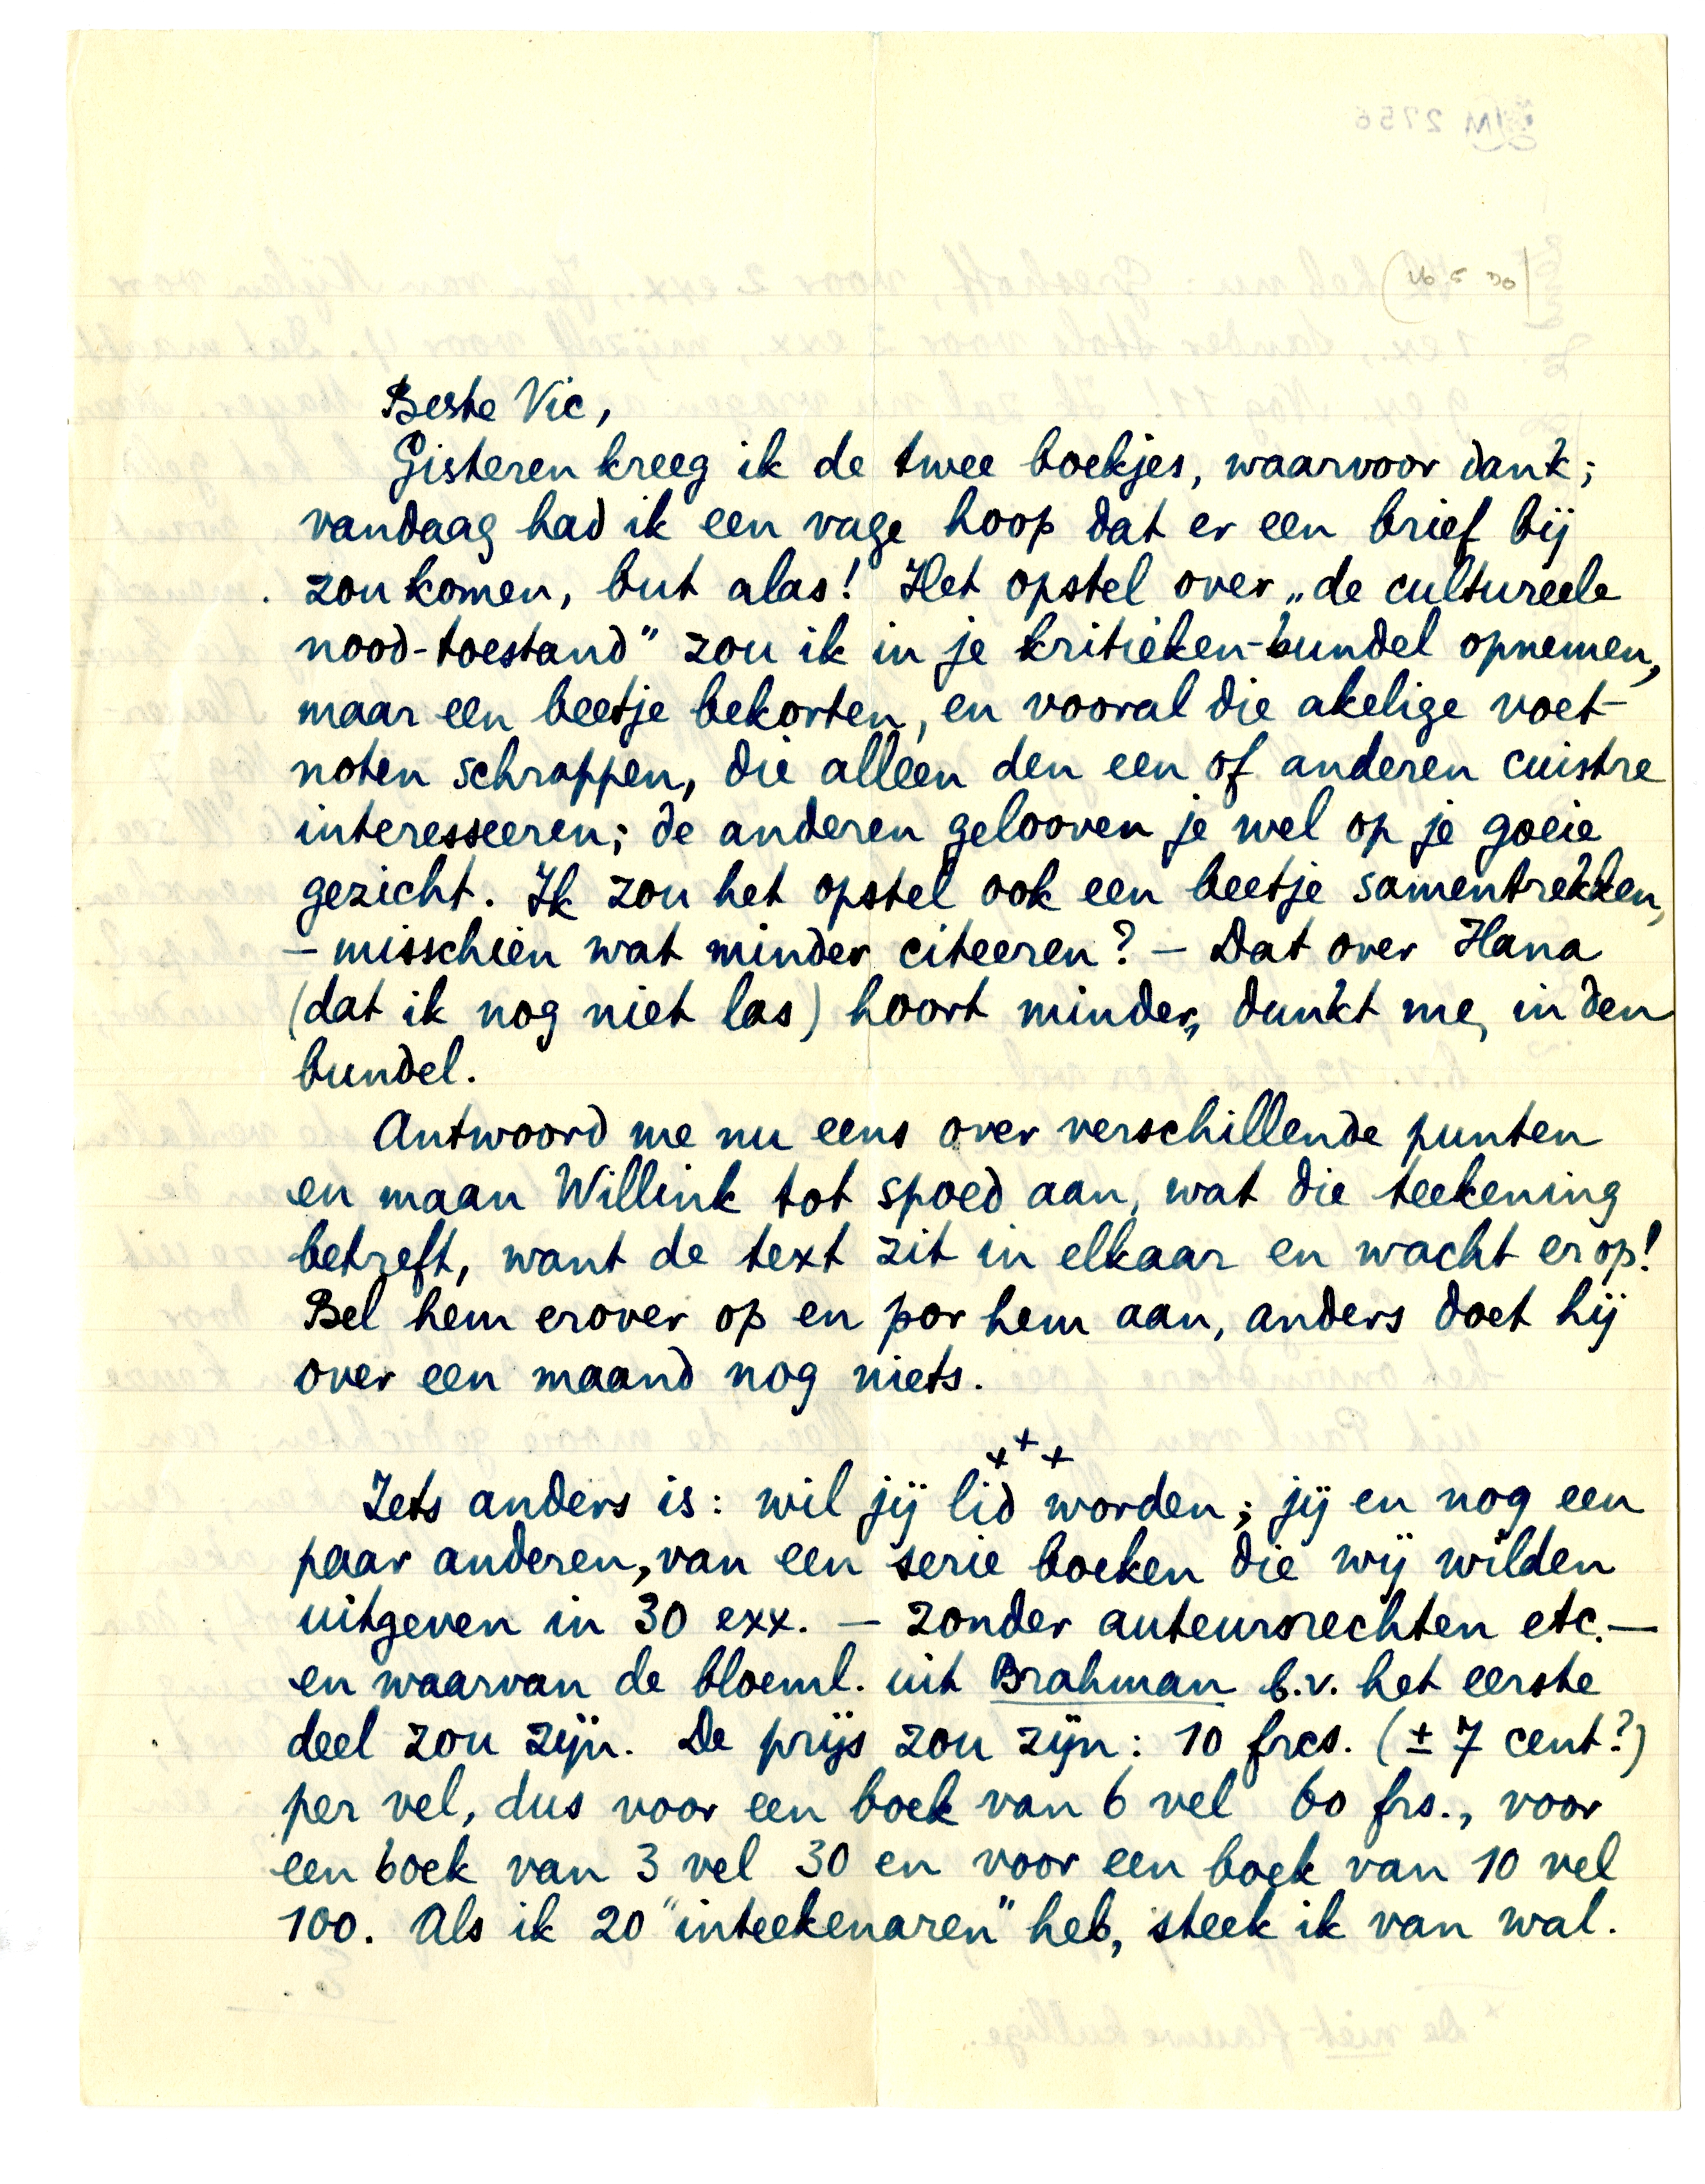 Beste Vic,
Gisteren kreeg ik de twee boekjes, waarvoor dank;
vandaag had ik een vage hoop dat er een brief bij
zou komen, but alas! Het opstel over „de cultureele
nood-toestand” zou ik in je kritieken-bundel opnemen,
maar een beetje bekorten, en vooral die akelige voet-
noten schrappen, die alleen den een of anderen cuistre
interesseeren; de anderen gelooven je wel op je goeie
gezicht. Ik zou het opstel ook een beetje samentrekken,
– misschien wat minder citeeren? – Dat over Hana
(dat ik nog niet las) hoort minder, dunkt me, in den
bundel.
Antwoord me nu eens over verschillende punten
en maan Willink tot spoed aan, wat die teekening
betreft, want de text zit in elkaar en wacht erop!
Bel hem erover op en por hem aan, anders doet hij
over een maand nog niets.
+ + +
Iets anders is: wil jij lid worden; jij en nog een
paar anderen, van een serie boeken die wij wilden
uitgeven in 30 exx. – zonder auteursrechten etc. –
en waarvan de bloeml. uit Brahman b.v. het eerste
deel zou zijn. De prijs zou zijn: 10 frcs. (± 7 cent?)
per vel, dus voor een boek van 6 vel 60 frs., voor
een boek van 3 vel 30 en voor een boek van 10 vel
100. Als ik 20 "inteekenaren" heb, steek ik van wal.